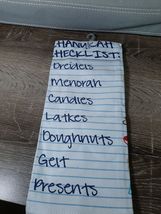 HANUKAH
HECKLIST:
Dreidels
Menorah
Candles
Latkes
Doughnuts
Gelt
Presents